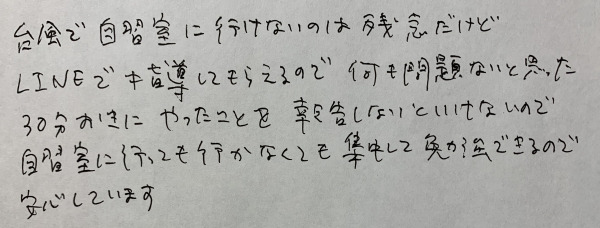 台風で自習室に行けないのは残念だけど
LINEで指導してもらえるので何も問題ないと思った
30分おきにやったことを報告しないといけないので
自習室に行っても行かなくても集中して勉強できるので
安心しています